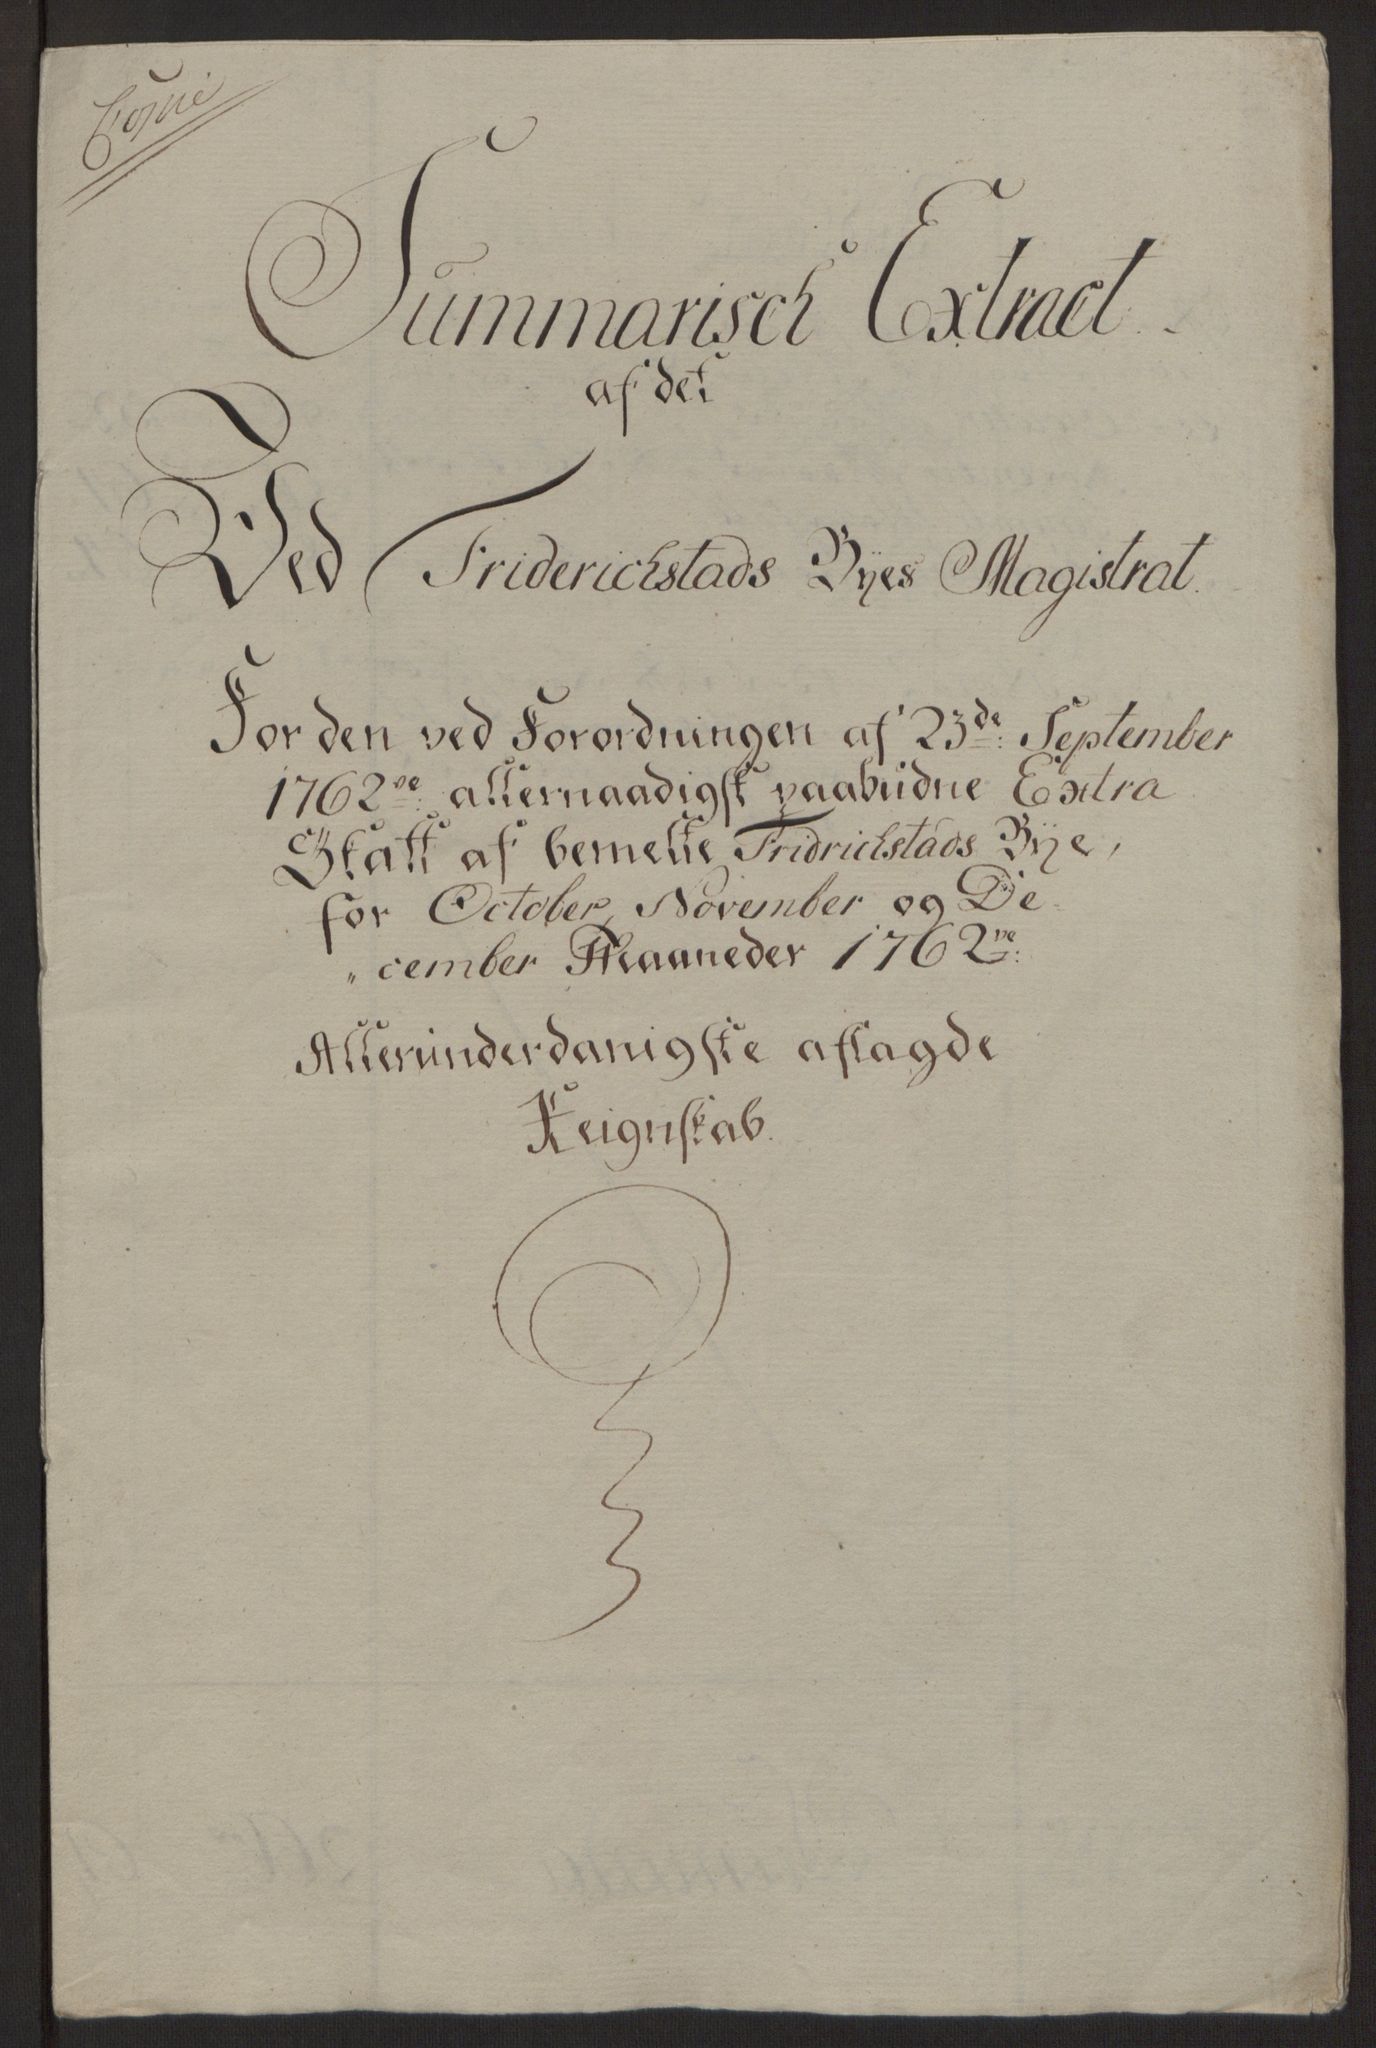 Copie
Summarisch Extract
af det
Ved Friderichstads Byes Magistrat
For den ved Forordningen af 23de September
1762ve allernaadigst paabudne Extra
Skatt af bemelte Fridrichstads Bye,
for October, November og De-
cember Maaneder 1762ve
Allerunderdanigste aflagde
Reignskab.